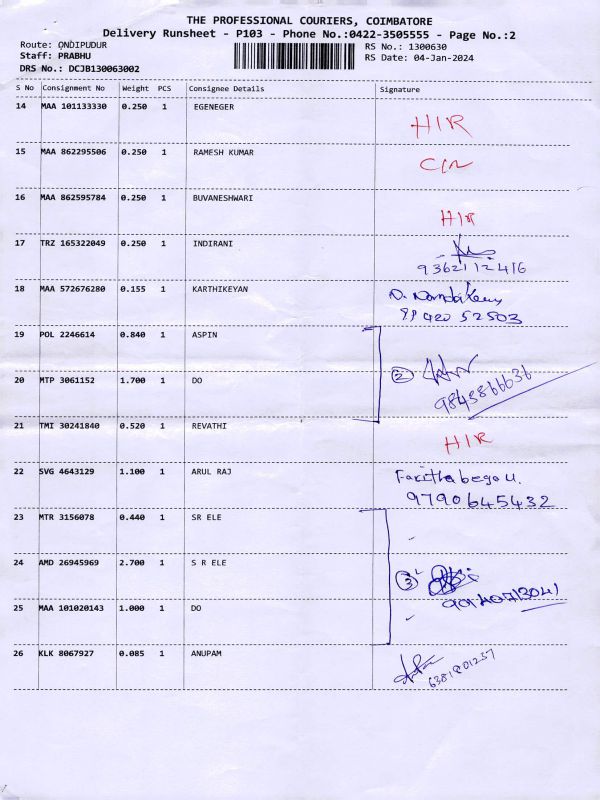 THE PROFESSIONAL COURIERS, COIMBATORE
Delivery Runsheet - P103 - Phone No.:0422-3505555 - Page No.:2
Route: ONDIPUDUR RS No.: 1300630
Staff: PRABHU RS Date: 04-Jan-2024
DRS No.: DCJB130063002
S No Consignment No Weight PCS Consignee Details Signature
14 MAA 101133330 0.250 1 EGENEGER HIR
15 MAA 862295506 0.250 1 RAMESH KUMAR
16 MAA 862595784 0.250 1 BUVANESHWARI HIR
17 TRZ 165322049 0.250 1 INDIRANI
9362112416
18 MAA 572676280 0.155 1 KARTHIKEYAN
99420 52503
19 POL 2246614 0.840 1 ASPIN
20 MTP 3061152 1.700 1 DO 2
9843866636
21 TMI 30241840 0.520 1 REVATHI HIR
22 SVG 4643129 1.100 1 ARUL RAJ
9790645432
23 MTR 3156078 0.440 1 SR ELE
24 AMD 26945969 2.700 1 S R ELE 3
25 MAA 101020143 1.000 1 DO
26 KLK 8067927 0.085 1 ANUPAM